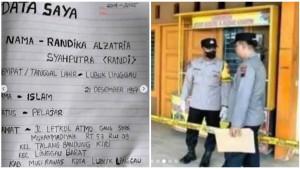 DATA SAYA
NAMA - RANDIKA ALZATRIA
SYAHPUTRA (RANDI)
EMPAT/TANGGAL LAHIR - LUBUK LINGGAU
21 DESEMBER 1997
AMA - ISLAM
ATUS - PELAJAR
AMAT - JL LETKOL ATMO GANG
MUHAMMADIYAH RT 53
KEL TALANG BANDUNG KIRI
KEC LINGGAU BARAT
KAB MUSI RAWAS KOTA LUBUK LINGGAU